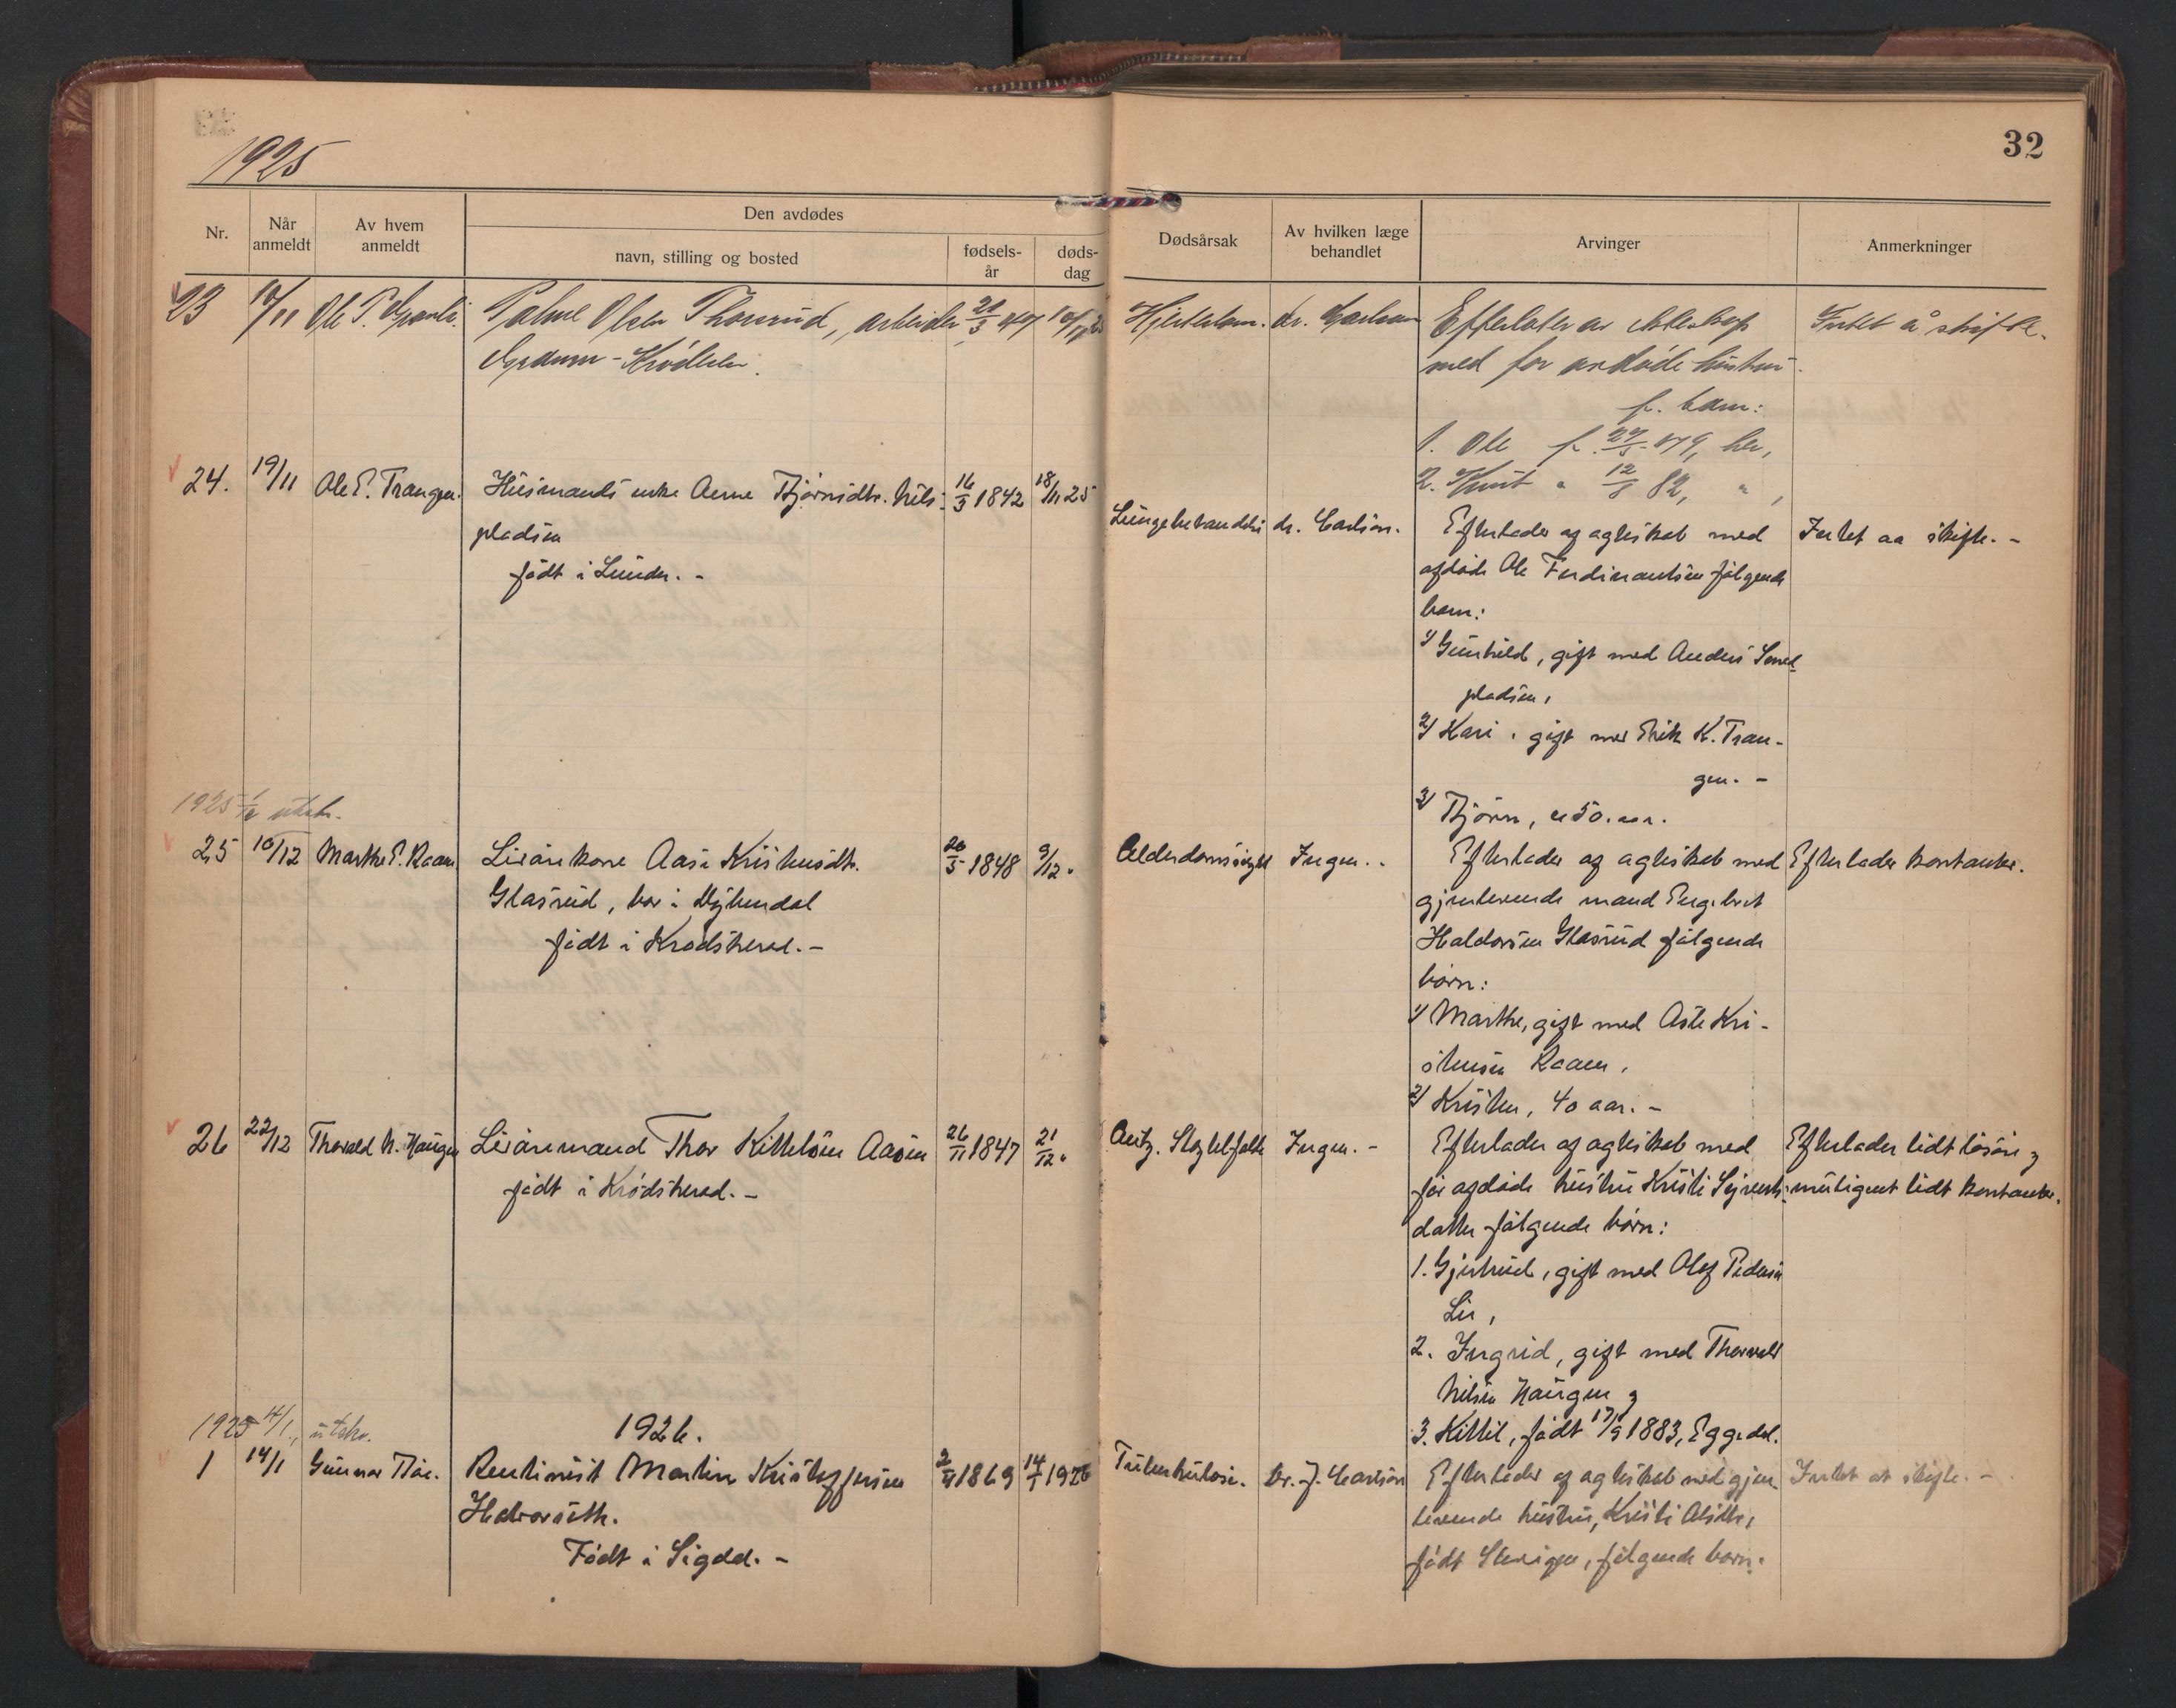 1925
32
Nr.
Når anmeldt
Av hvem anmeldt
Den avdødes
navn, stilling og bosted
fødsels-år
døds-dag
Dødsårsak
Av hvilken læge behandlet
Arvinger
Anmerkninger
23
10/11
Ole P.
Palme Olsen Thorrud, arbeider
Krødsherad.
dr. Carlson
Efterlater av ekteskap
med før avdøde hustru
f. barn:
1. Ole f.
2. Knut
Intet å skifte.
24.
19/11
Ole E. Trangen.
Husmands enke Anne Bjørnsdtr. Nils-
pladsen
født i Lunder. -
16/3 1842
18/11 25
dr. Carlson.
Efterlader af ægteskab med
afdøde Ole Ferdinantsen følgende
barn:
1) Gunhild, gift med Anders Smed-
pladsen,
2) Kari, gift med Erik K. Tran-
gen. -
3) Bjørn, c 50. aar.
Intet aa skifte. -
1925 utskr.
25
10/12
Marthe E. Raaen
Livørekone Aase Kristensdtr.
Glasrud, bor i
født i Krødsherad. -
26/5 1848
9/12.
Alderdomssvaghed
Ingen. -
Efterlader af ægteskab med
gjenlevende mand Engebret
Haldorsen Glasrud følgende
børn:
1) Marthe, gift med Asle Kri-
stensen Raaen,
2) Kristen, 40 aar. -
Efterlader kontanter.
26
22/12
Thorvald N. Haugen
Livøremand Thor Kittelsen Aasen
født i Krødsherad. -
26/11 1847
21/12.
Ingen. -
Efterlader af ægteskab med
før afdøde hustru Kristi Syverts-
datter følgende børn:
1. Gjertrud, gift med Olaf Pedersen
Lie,
2. Ingrid, gift med Thorvald
Nilsen Haugen &
3. Kittil, født 17/9 1883, Eggedal.
Efterlader lidt løsøre &
muligens lidt kontanter.
1925 14/1, utskr.
1926.
1
14/1
Gunnar
Rentenist Martin Kristoffersen
Halvorseth.
Født i Sigdal. -
1869
14/1 1926
Tuberkulose.
Dr. J. Carlson
Efterlader af ægteskab med gjen-
levende hustru, Kristi Olsdtr,
født, følgende børn.
Intet at skifte. -